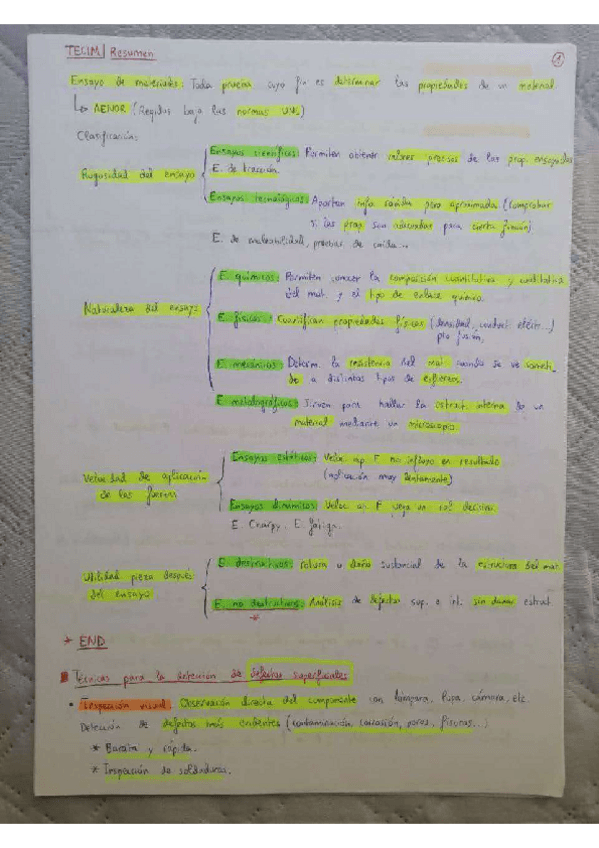 TECIM | Resumen
1
Ensayo de materiales: Toda prueba cuyo fin es determinar las propiedades de un material
↳ AENOR (Regidos bajo las normas UNE)
Clasificación:
Ensayos científicos: Permiten obtener valores precisos de las prop. ensayadas
Rugosidad del ensayo
E. de tracción.
Ensayos tecnológicos: Aportan info rápida pero aproximada (comprobar
si las prop son adecuadas para cierta función)
E. de maleabilidad, pruebas de caída...
E. químicos: Permiten conocer la composición cuantitativa y cualitativa
del mat. y el tipo de enlace químico.
Naturaleza del ensayo
E. físicos: Cuantifican propiedades físicas (densidad, conduct. eléctr...)
pto fusión,
E. mecánicos: Determ. la resistencia del mat. cuando se ve someti-
do a distintos tipos de esfuerzos.
E. metalográficos: Sirven para hallar la estruct. interna de un
material mediante un microscopio.
Ensayos estáticos: Veloc ap. F. no influye en resultado
(aplicación muy lentamente)
Velocidad de aplicación
de las fuerzas
Ensayos dinámicos: Veloc. ap. F juega un rol decisivo.
E. Charpy, E. fatiga.
E. destructivos: rotura o daño sustancial de la estructura del mat.
Utilidad pieza después
del ensayo
E. no destructivos: Análisis de defectos sup. e int. sin dañar estruct.
*
→ END
Técnicas para la detección de defectos superficiales
• Inspección visual: Observación directa del componente con lámpara, lupa, cámara, etc.
Detección de defectos más evidentes (contaminación, corrosión, poros, fisuras...)
* Barata y rápida.
* Inspección de soldaduras.